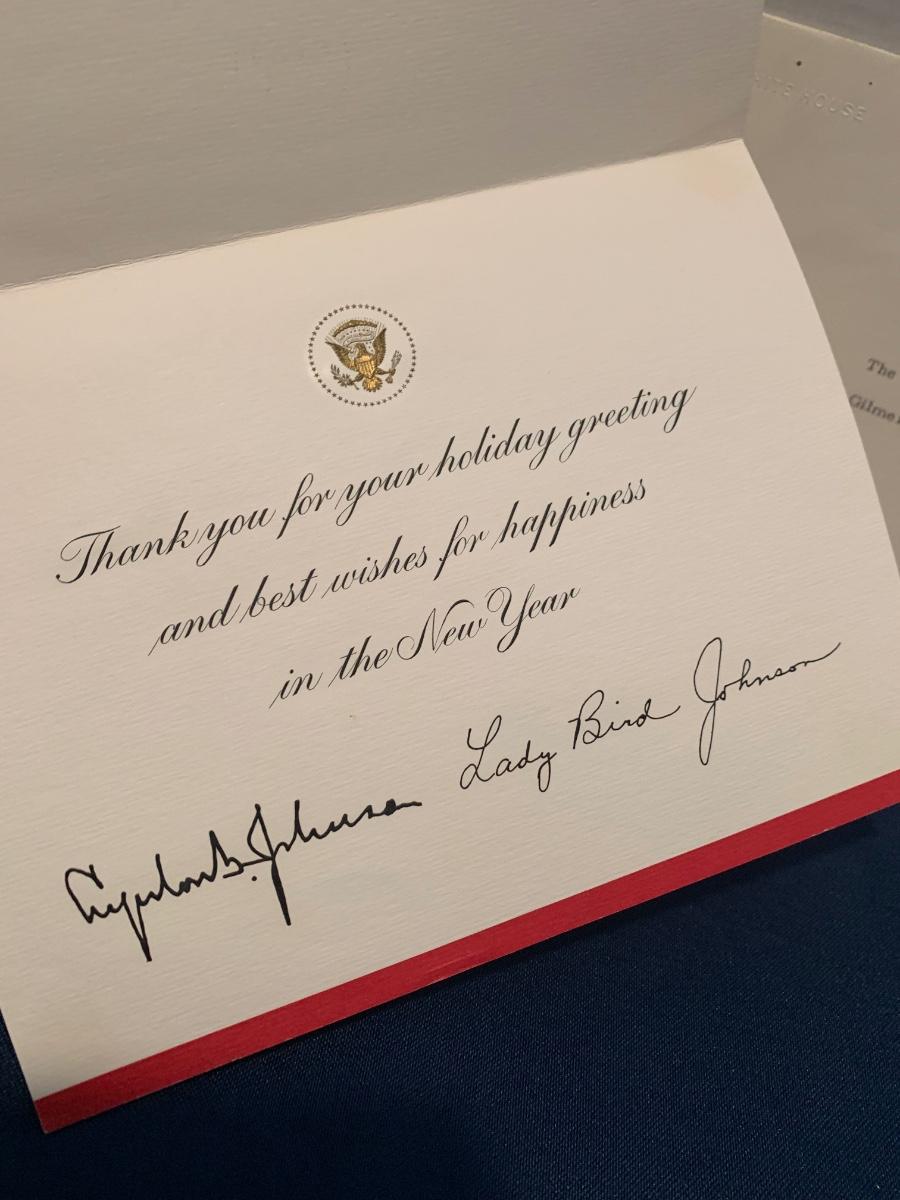 ITE HOUSE
The
Gilme
Thank you for your holiday greeting
and best wishes for happiness
in the New Year
Lady Bird Johnson
Lyndon B. Johnson